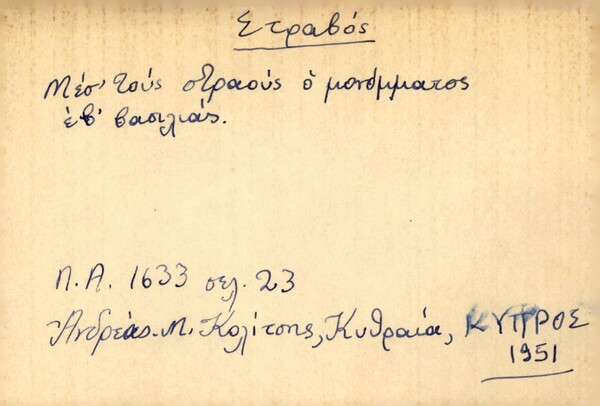 Στραβός
Μέσ' τούς στραούς ὁ μονόμματος
ἐν' βασιλιάς.
Π.Α. 1633 σελ. 23
Ἀνδρέας Μ. Κολίτσης, Κυθραία, ΚΥΠΡΟΣ
1951